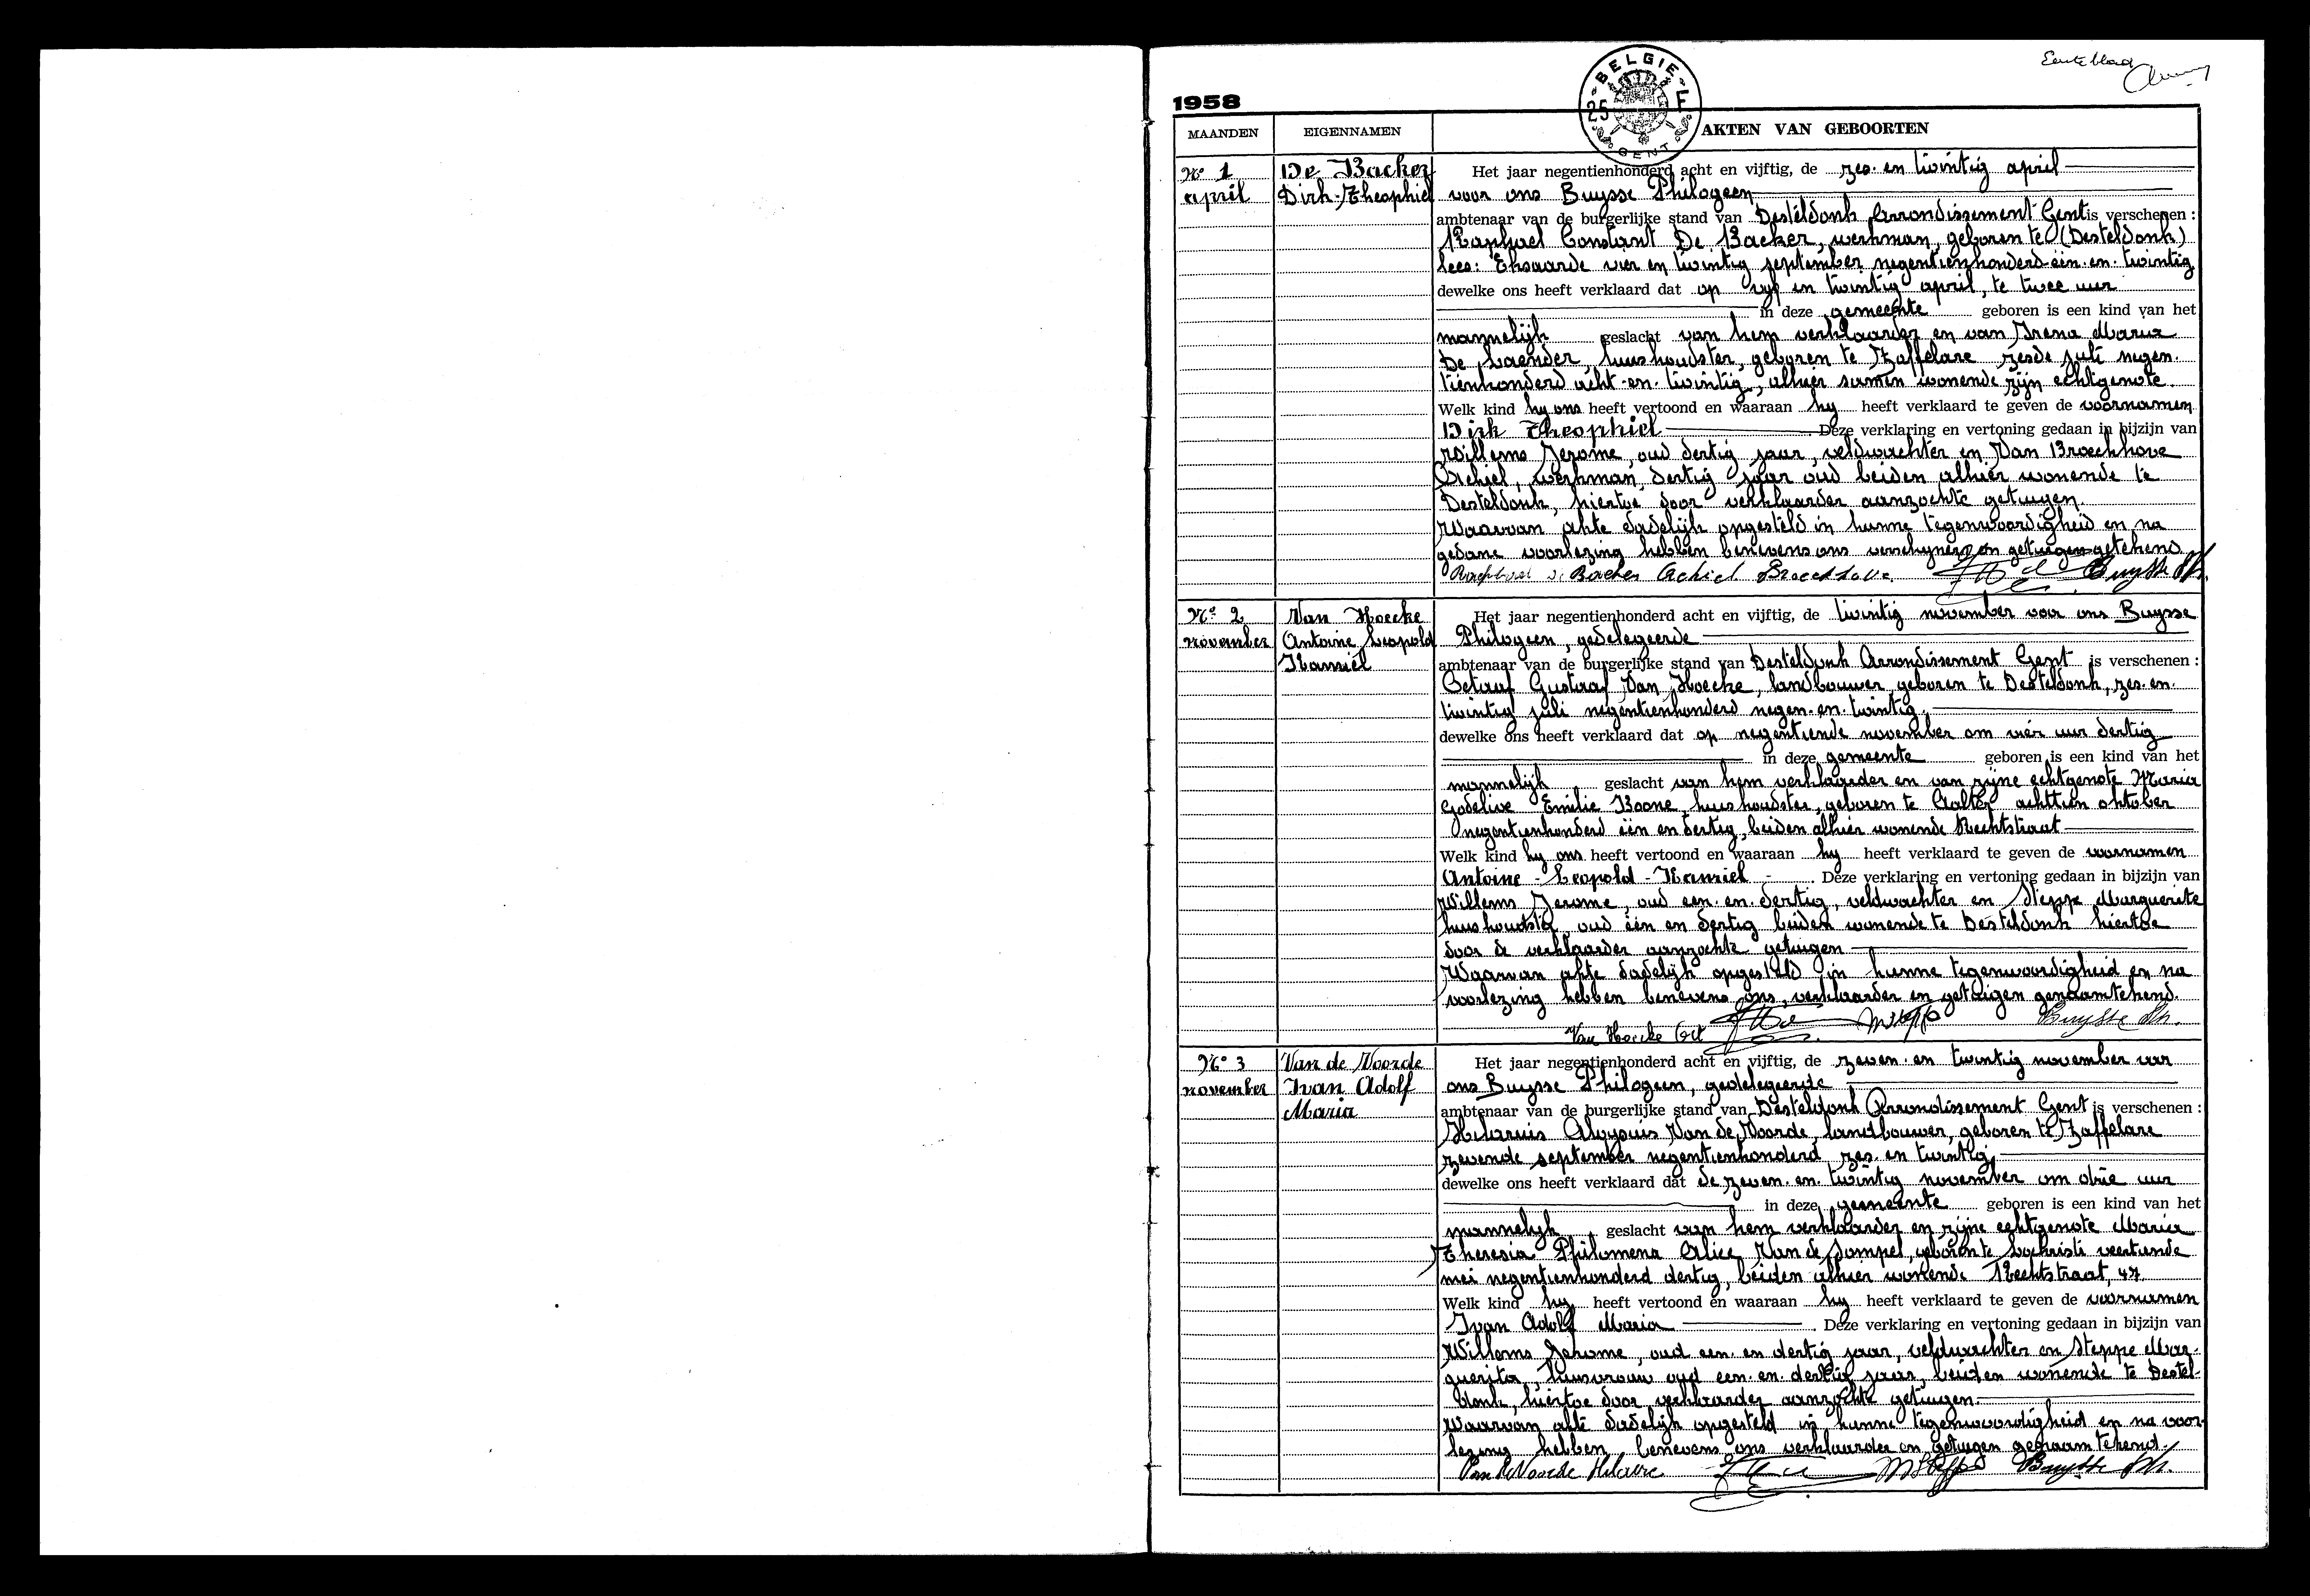 Eerste blad
1958
BELGIE
25 F
GENT
MAANDEN EIGENNAMEN AKTEN VAN GEBOORTEN
N° 1
april
De Backer
Dirk-Theophiel
Het jaar negentienhonderd acht en vijftig, de zes en twintig april
voor ons Buysse Philogeen
ambtenaar van de burgerlijke stand van Desteldonk Arrondissement Gent is verschenen :
Raphael Constant De Backer, werkman, geboren te (Desteldonk)
lees: Eksaarde vier en twintig september negentienhonderd één en twintig
dewelke ons heeft verklaard dat op vyf en twintig april, te twee uur
in deze gemeente geboren is een kind van het
mannelijk geslacht van hem verklaarder en van Irena Maria
De huishoudster, geboren te Zaffelare zesde juli negen-
tienhonderd acht-en-twintig, alhier samen wonende zijn echtgenote.
Welk kind hy ons heeft vertoond en waaraan hy heeft verklaard te geven de voornamen
Dirk Theophiel Deze verklaring en vertoning gedaan in bijzijn van
Willems Jerome, oud dertig jaar, veldwachter en Van Broeckhove
Achiel, werkman, dertig jaar oud beiden alhier wonende te
Desteldonk, hiertoe door verklaarder aanzochte getuigen.
Waarvan akte dadelijk opgesteld in hunne tegenwoordigheid en na
gedane voorlezing hebben benevens ons verschyner en getuigen getekend
Raphael De Backer Achiel Broeckhove Buysse Ph.
N° 2
november
Van Hoecke
Antoine Leopold
Kamiel
Het jaar negentienhonderd acht en vijftig, de twintig november voor ons Buysse
Philogeen, gedelegeerde
ambtenaar van de burgerlijke stand van Desteldonk Arrondissement Gent is verschenen :
Octaaf Gustaaf Van Hoecke, landbouwer geboren te Desteldonk, zes-en-
twintig juli negentienhonderd negen-en-twintig.
dewelke ons heeft verklaard dat op negentiende november om vier uur dertig
in deze gemeente geboren is een kind van het
mannelijk geslacht van hem verklaarder en van zijne echtgenote Maria
Godelive Emilie Boone, huishoudster, geboren te Aalter achttien oktober
negentienhonderd één en dertig, beiden alhier wonende Rechtstraat
Welk kind hy ons heeft vertoond en waaraan hy heeft verklaard te geven de voornamen
Antoine - Leopold - Kamiel - Deze verklaring en vertoning gedaan in bijzijn van
Willems Jerome, oud een-en-dertig, veldwachter en Steppe Marguerite
huishoudster, oud één en dertig beiden wonende te Desteldonk hiertoe
door de verklaarder aanzochte getuigen
Waarvan akte dadelijk opgesteld in hunne tegenwoordigheid en na
voorlezing hebben benevens ons, verklaarder en getuigen genaamtekend.
Van Hoecke Oct MSteppe Buysse Ph.
N° 3
november
Van de Voorde
Ivan Adolf
Maria
Het jaar negentienhonderd acht en vijftig, de zeven-en twintig november voor
ons Buysse Philogeen, gedelegeerde
ambtenaar van de burgerlijke stand van Desteldonk Arrondissement Gent is verschenen :
Hilarius Aloysuis Van de Voorde, landbouwer, geboren te Zaffelare
zevende september negentienhonderd zes-en twintig,
dewelke ons heeft verklaard dat de zeven-en-twintig november om drie uur
in deze gemeente geboren is een kind van het
mannelijk geslacht van hem verklaarder en zijne echtgenote Maria
Theresia Philomena Alice Van de Sompel, geboren te Lochristi veertiende
mei negentienhonderd dertig, beiden alhier wonende Rechtstraat, 47
Welk kind hy heeft vertoond en waaraan hy heeft verklaard te geven de voornamen
Ivan Adolf Maria Deze verklaring en vertoning gedaan in bijzijn van
Willems Jerome, oud een en dertig jaar, veldwachter en Steppe Mar-
guerita, huisvrouw oud een-en-dertig jaar, beiden wonende te Destel-
donk, hiertoe door verklaarder aanzochte getuigen.
Waarvan akte dadelijk opgesteld in hunne tegenwoordigheid en na voor-
lezing hebben benevens ons verklaarder en getuigen genaamtekend.
Van De Voorde Hilaire MSteppe Buysse Ph.